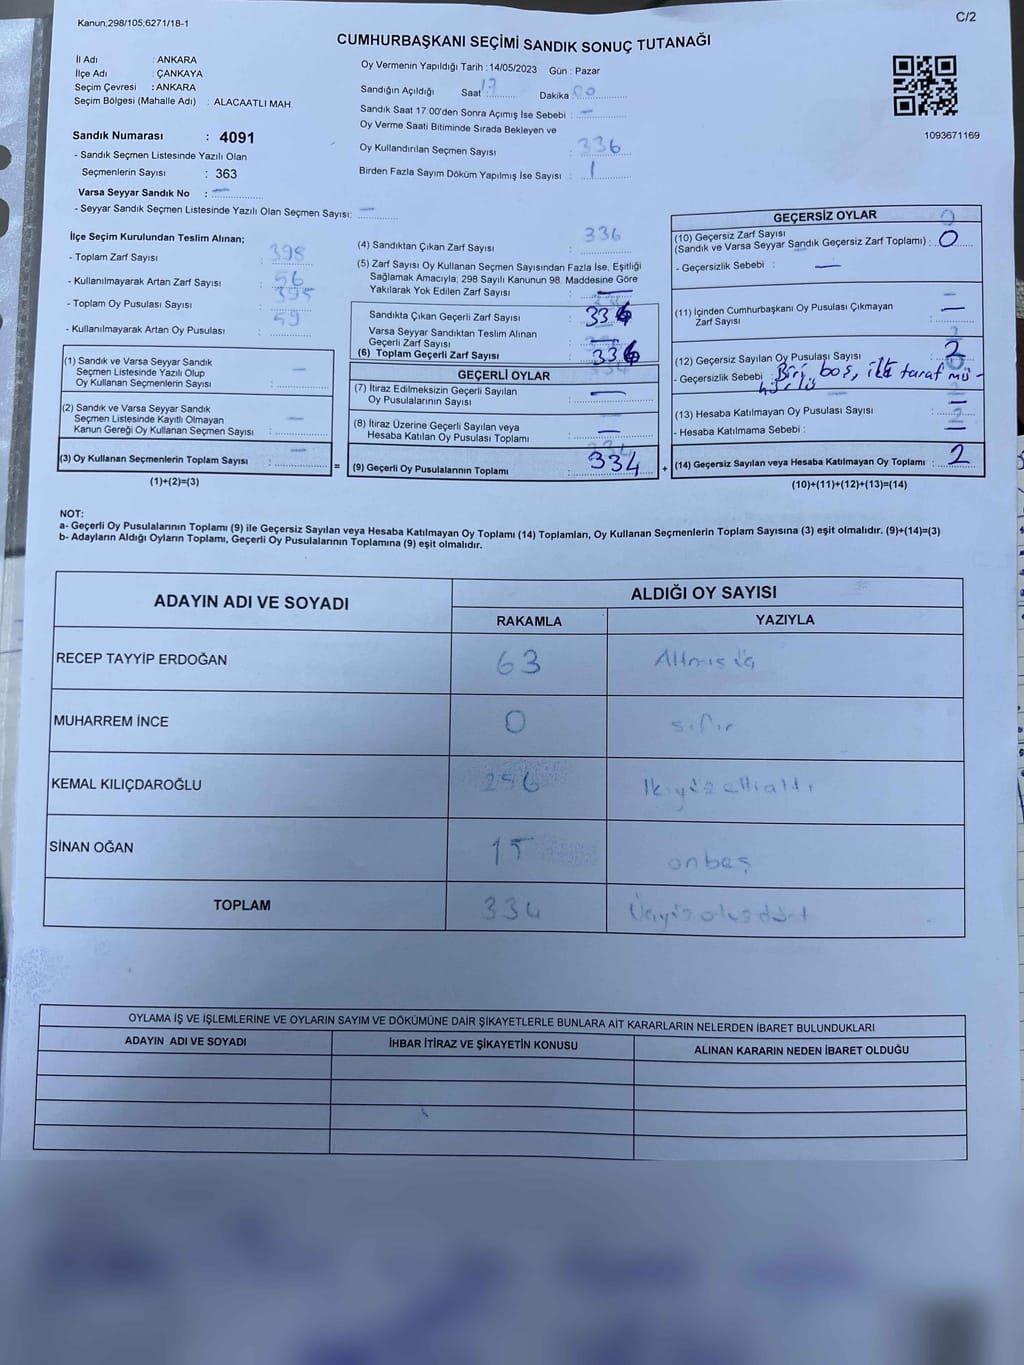 Kanun,298/105,6271/18-1
C/2
CUMHURBAŞKANI SEÇİMİ SANDIK SONUÇ TUTANAĞI
İl Adı : ANKARA
İlçe Adı : ÇANKAYA
Seçim Çevresi : ANKARA
Seçim Bölgesi (Mahalle Adı) : ALACAATLI MAH.
Sandık Numarası : 4091
- Sandık Seçmen Listesinde Yazılı Olan
Seçmenlerin Sayısı : 363
Varsa Seyyar Sandık No : —
- Seyyar Sandık Seçmen Listesinde Yazılı Olan Seçmen Sayısı: —
Oy Vermenin Yapıldığı Tarih : 14/05/2023 Gün : Pazar
Sandığın Açıldığı Saat : 17 Dakika : 00
Sandık Saat 17:00'den Sonra Açımış İse Sebebi : —
Oy Verme Saati Bitiminde Sırada Bekleyen ve
Oy Kullandırılan Seçmen Sayısı : 336
Birden Fazla Sayım Döküm Yapılmış İse Sayısı : 1
1093671169
İlçe Seçim Kurulundan Teslim Alınan;
- Toplam Zarf Sayısı : 398
- Kullanılmayarak Artan Zarf Sayısı : 56
- Toplam Oy Pusulası Sayısı : 395
- Kullanılmayarak Artan Oy Pusulası : 59
(1) Sandık ve Varsa Seyyar Sandık
Seçmen Listesinde Yazılı Olup
Oy Kullanan Seçmenlerin Sayısı : —
(2) Sandık ve Varsa Seyyar Sandık
Seçmen Listesinde Kayıtlı Olmayan
Kanun Gereği Oy Kullanan Seçmen Sayısı : —
(3) Oy Kullanan Seçmenlerin Toplam Sayısı : —
(1)+(2)=(3)
=
(4) Sandıktan Çıkan Zarf Sayısı : 336
(5) Zarf Sayısı Oy Kullanan Seçmen Sayısından Fazla İse, Eşitliği
Sağlamak Amacıyla; 298 Sayılı Kanunun 98. Maddesine Göre
Yakılarak Yok Edilen Zarf Sayısı : —
Sandıkta Çıkan Geçerli Zarf Sayısı : 336
Varsa Seyyar Sandıktan Teslim Alınan
Geçerli Zarf Sayısı : —
(6) Toplam Geçerli Zarf Sayısı : 336
GEÇERLİ OYLAR
(7) İtiraz Edilmeksizin Geçerli Sayılan
Oy Pusulalarının Sayısı : —
(8) İtiraz Üzerine Geçerli Sayılan veya
Hesaba Katılan Oy Pusulası Toplamı : —
(9) Geçerli Oy Pusulalarının Toplamı : 334
+
GEÇERSİZ OYLAR
(10) Geçersiz Zarf Sayısı
(Sandık ve Varsa Seyyar Sandık Geçersiz Zarf Toplamı) : 0
- Geçersizlik Sebebi : —
(11) İçinden Cumhurbaşkanı Oy Pusulası Çıkmayan
Zarf Sayısı : —
(12) Geçersiz Sayılan Oy Pusulası Sayısı : 2
- Geçersizlik Sebebi : Biri boş, iki taraf mü-
hürlü
(13) Hesaba Katılmayan Oy Pusulası Sayısı : —
- Hesaba Katılmama Sebebi : —
(14) Geçersiz Sayılan veya Hesaba Katılmayan Oy Toplamı : 2
(10)+(11)+(12)+(13)=(14)
NOT:
a- Geçerli Oy Pusulalarının Toplamı (9) ile Geçersiz Sayılan veya Hesaba Katılmayan Oy Toplamı (14) Toplamları, Oy Kullanan Seçmenlerin Toplam Sayısına (3) eşit olmalıdır. (9)+(14)=(3)
b- Adayların Aldığı Oyların Toplamı, Geçerli Oy Pusulalarının Toplamına (9) eşit olmalıdır.
ADAYIN ADI VE SOYADI
ALDIĞI OY SAYISI
RAKAMLA YAZIYLA
RECEP TAYYİP ERDOĞAN 63 Altmış üç
MUHARREM İNCE 0 sıfır
KEMAL KILIÇDAROĞLU 256 İkiyüzellialtı
SİNAN OĞAN 15 onbeş
TOPLAM 334 Üçyüzotuzdört
OYLAMA İŞ VE İŞLEMLERİNE VE OYLARIN SAYIM VE DÖKÜMÜNE DAİR ŞİKAYETLERLE BUNLARA AİT KARARLARIN NELERDEN İBARET BULUNDUKLARI
ADAYIN ADI VE SOYADI İHBAR İTİRAZ VE ŞİKAYETİN KONUSU ALINAN KARARIN NEDEN İBARET OLDUĞU